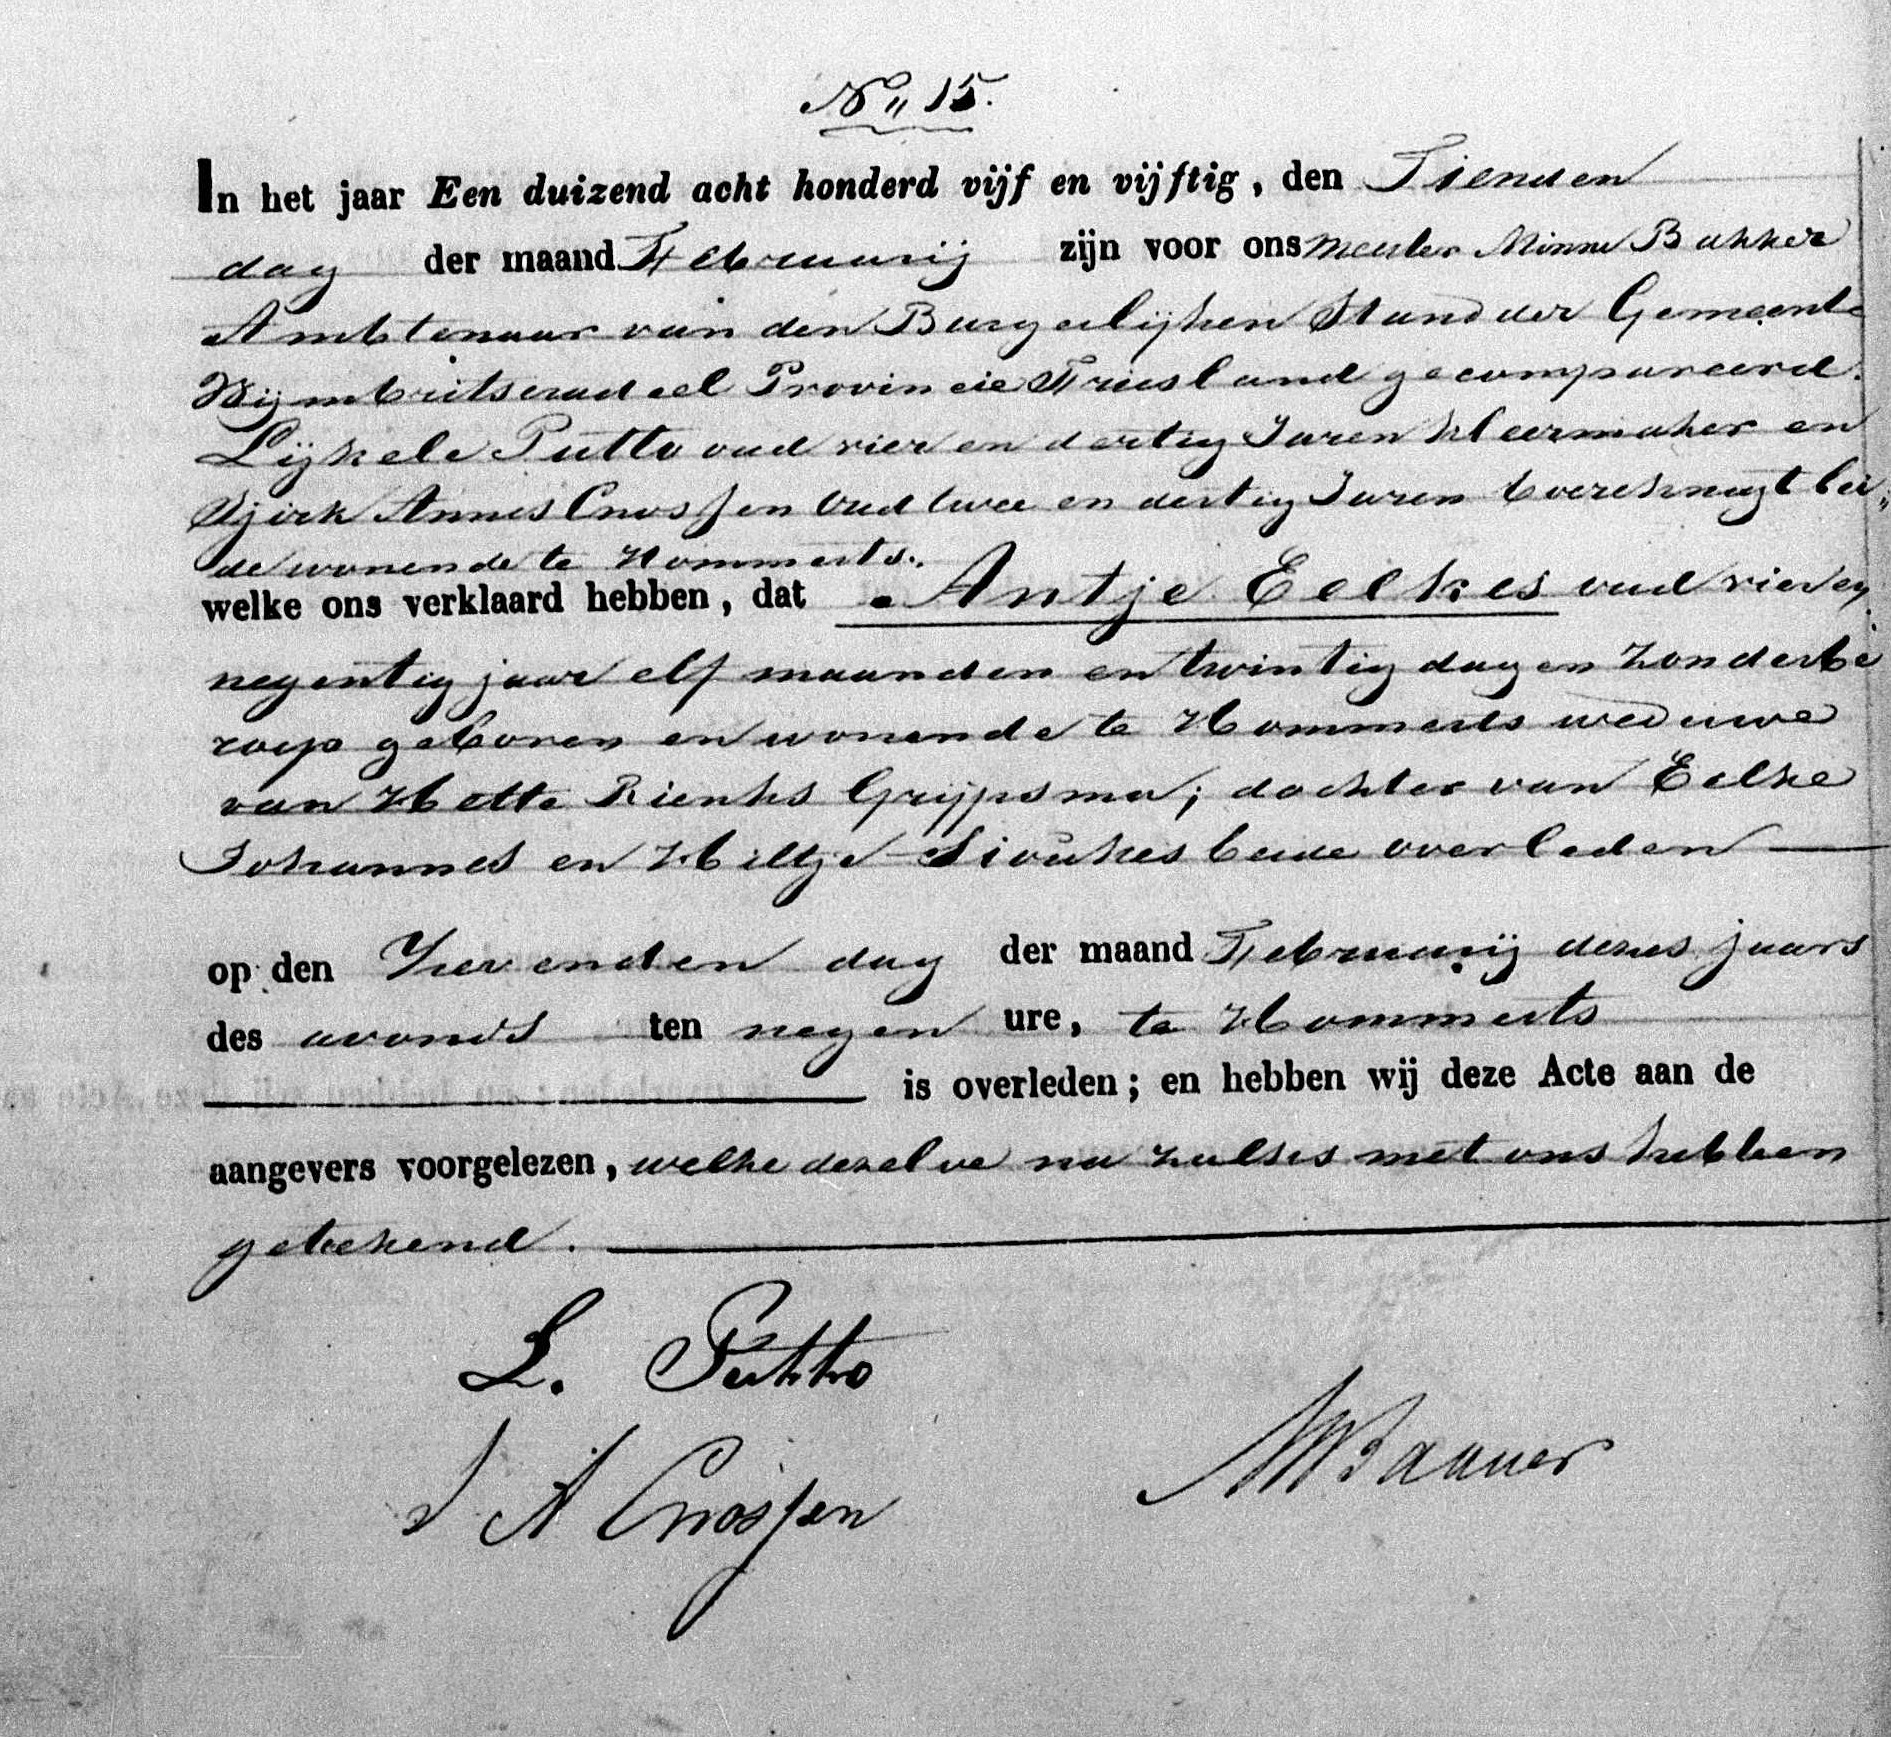 No 15.
In het jaar Een duizend acht honderd vijf en vijftig, den Tienden
dag der maand Februarij zijn voor ons Meester Minne Bakker
Ambtenaar van den Burgerlijken Stand der Gemeente
Wijmbritseradeel Provincie Friesland gecompareerd.
Lijkele Putto oud vier en dertig Jaren kleermaker en
Sjerk Annes Cnossen oud twee en dertig Jaren boereknegt bei„
de wonende te Hommerts.
welke ons verklaard hebben, dat Antje Eelkes oud vier en
negentig jaar elf maanden en twintig dagen zonder be
roep geboren en wonende te Hommerts weduwe
van Hette Rienks Grijpsma; dochter van Eelke
Johannes en Hiltje Sioukes beide overleden
op den Zevenden dag der maand Februarij dezes jaars
des avonds ten negen ure, te Hommerts
is overleden; en hebben wij deze Acte aan de
aangevers voorgelezen, welke dezelve na zulks met ons hebben
getekend.
L. Putto
S A Cnossen
MBakker